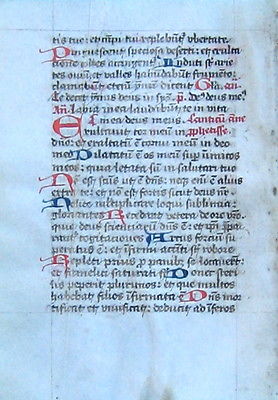 tis tue: et cāpi tui replebūt ubertate.
Pinguescent speciosa deserti: et exulta
cione colles accingent. Induti st arie
tes ouiū, et valles habūdabūt frumēto:
clamabūt etenī ymnū dicent Gla. an.
Te decet ymnus deus in syō. p̄. Ds̄ deus me⁹
An. labia mea laudabūt te in uita
E meū deus meus. Canticū āne
exultauit cor meū in prophetisse.
dn̄o: et exaltatū ē cornu meū in deo
meo Dilatatū ē os meū sup̄ inimicos
meos: quia letata sū in salutari tuo
Nō est sāctus ut ē dn̄s: neq̄ enī ē alius
extra te: et nō est fortis sicut deus nr̄
Nolite multiplicare loqui sublimia:
gloriantes Recedant vetera de ore vr̄o
quia deus scientiarū dn̄s ē: et ip̄i p̄pa
rant᷑ cogitationes Arcus fortiū su
peratus ē: et infirmi accīti st robore
Repleti prius p̄ panib⁹ se locauert̄:
et famelici saturati st̄ Donec steri
lis peperit plurimos: et que multos
habebat filios īfirmata ē Dn̄s mor
tificat et viuificat: deducit ad īferos